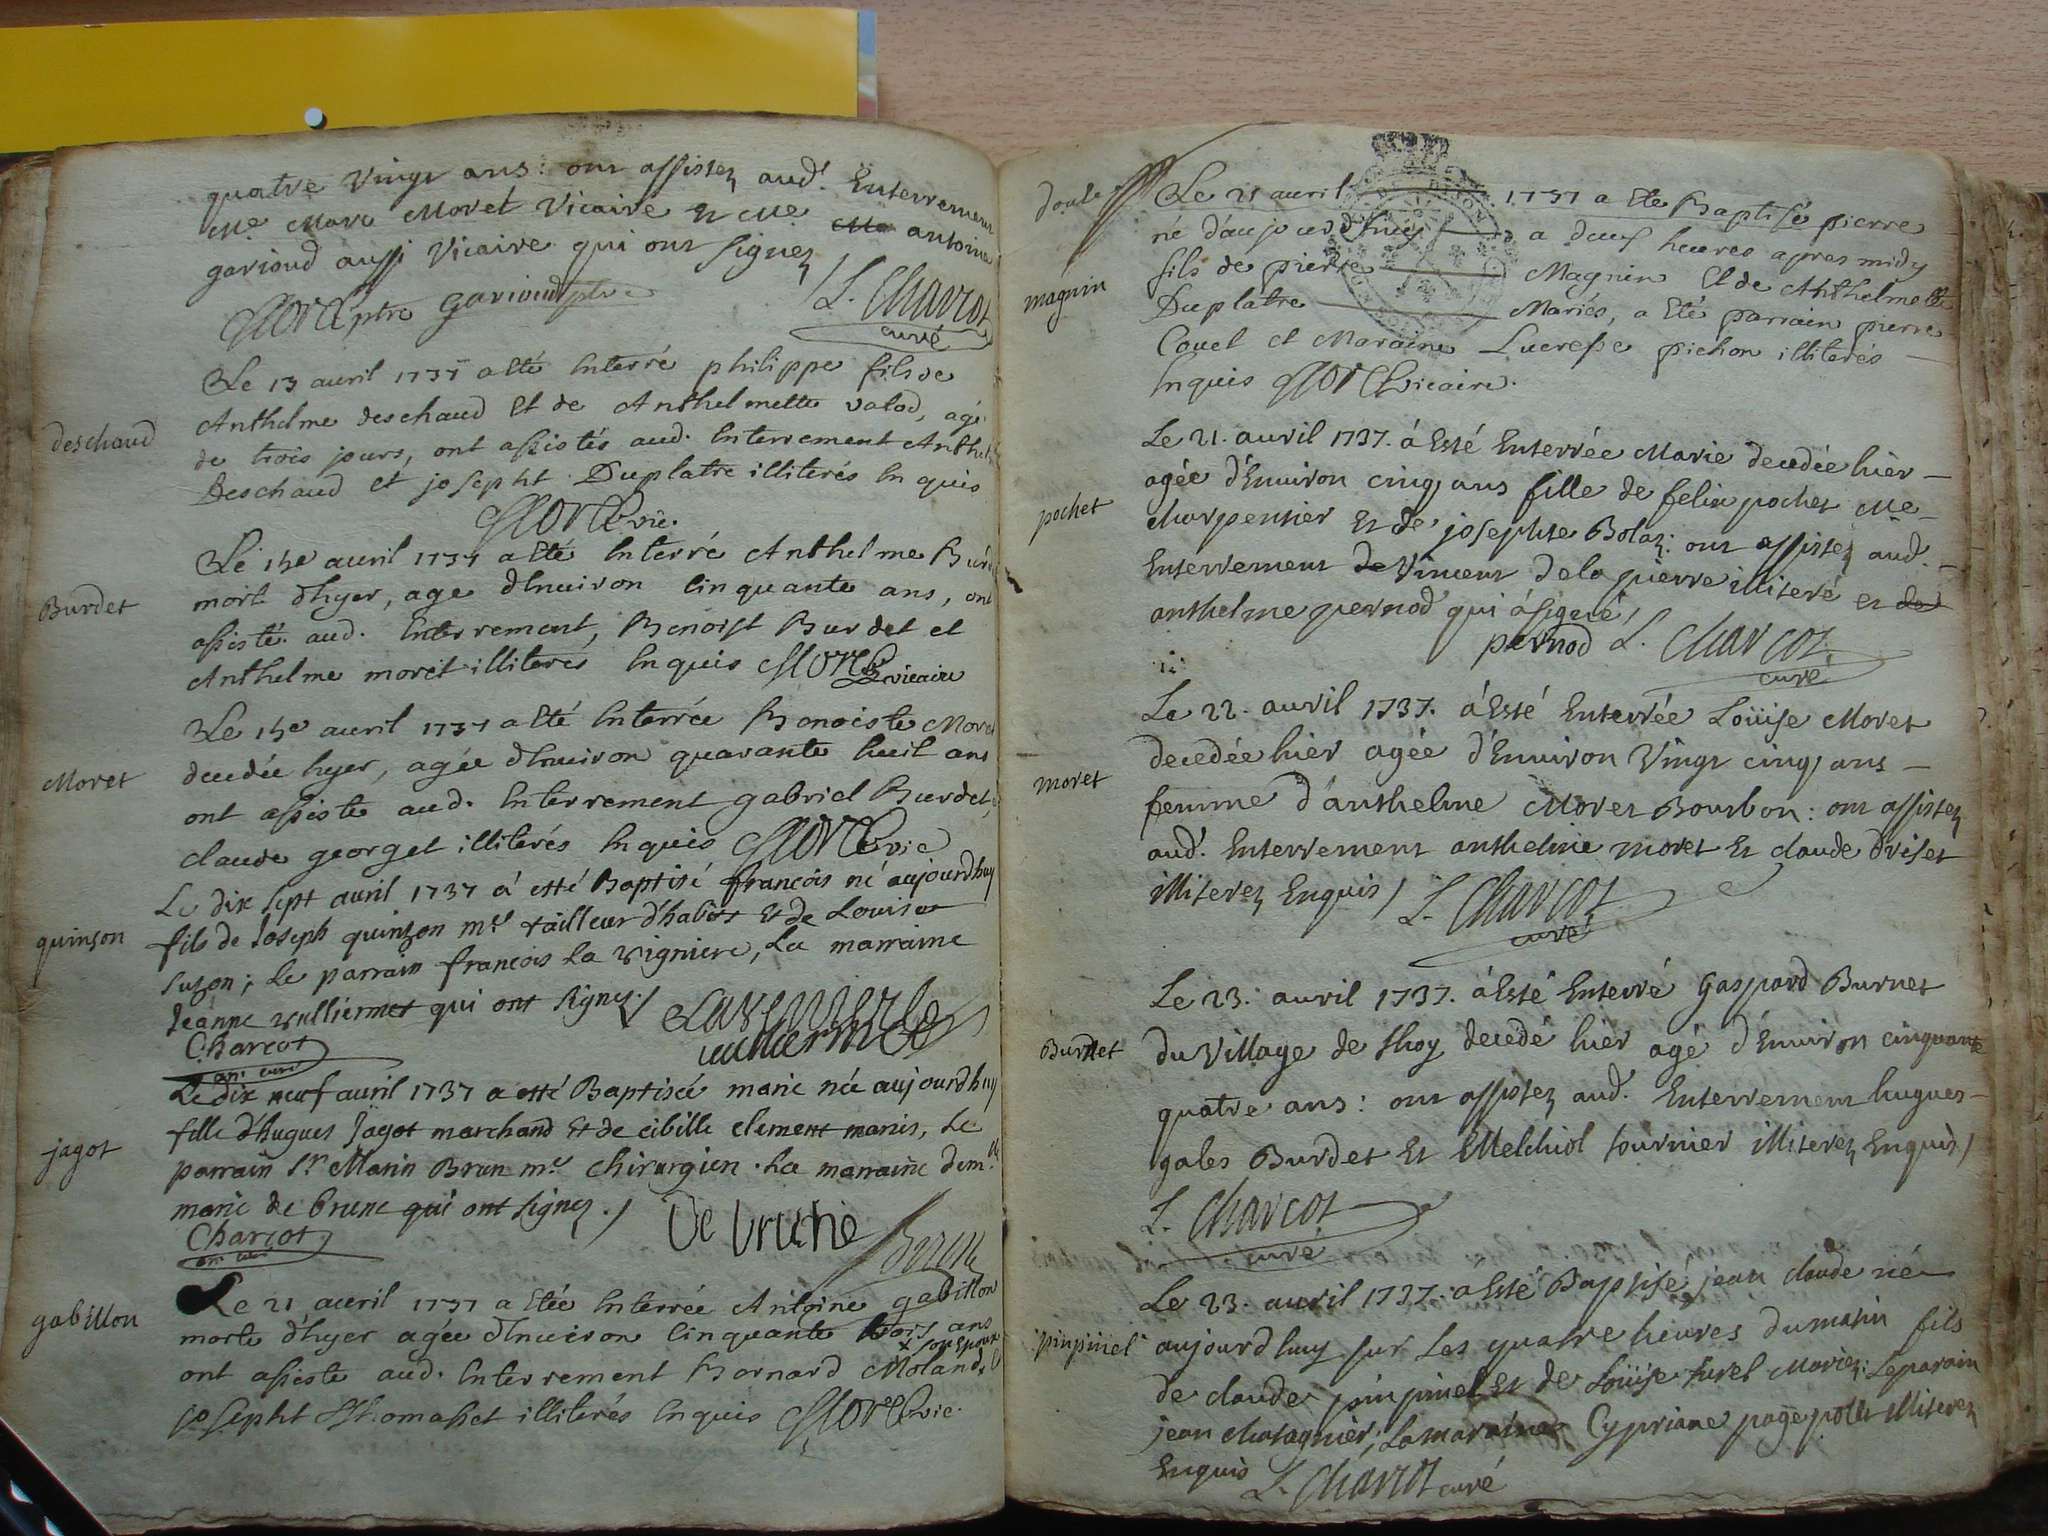 quatre Vingt ans : ont assistez aud. Enterrement
Me. Marc Moret Vicaire et Me antoine
garioud aussi Vicaire qui ont signez
Moret ptre garioud ptre L. Charcot
curé
deschaud
Le 13 avril 1737 a Eté Interré philippe fils de
Anthelme deschaud et de Anthelmette valod, agé
de trois jours, ont assistés aud. Interrement
Deschaud et josepht Duplatre illiterés Inquis
Moret vic.
Burdet
Le avril 1737 a Eté Interré Anthelme
mort d'hyer, age dInuiron Cinquante ans, ont
assisté aud. Enterrement, Benoist Burdet et
Anthelme moret illiterés Inquis Moret vicaire
Moret
Le avril 1737 a Eté Interrée Benoiste
decedée hyer, agée dInuiron quarante huit ans
ont assiste aud. Interrement gabriel Burdet,
claude georget illiterés Inquis Moret vic
quinson
Le dix sept avril 1737 á esté Baptisé françois né aujourdhuy
fils de Joseph quinson mre tailleur d'habits Et de Louise
suzon ; Le parrain françois la vigniere, La marraine
Jeanne vulliermet qui ont signez./
Charcot
Le dix neuf avril 1737 a esté Baptisée marie née aujourdhuy
jagot
fille d'hugues Jagot marchand Et de cibille clement mariés, Le
parrain Sr Marin Brun mre chirurgien . La marraine
marie de brune qui ont signez ./ De brune Brun
Charcot
gabillon
Le 21 avril 1737 a Etée Interrée Antoine gabillon
morte d'hyer agée dInuiron Cinquante trois ans
son Epoux
ont assiste aud. Interrement Bernard Moland,
josepht Thomasset illiterés Inquis Moret vic.
magnin
Le 21 avril 1737 a Eté Baptisé pierre
né d'aujourdhuy a deux heures apres midy
fils de pierre Magnin Et de Anthelmette
Duplatre Mariés, a Eté parrain pierre
Couet et Maraine Lucresse pichon illiterés
Inquis Moret vicaire.
pochet
Le 21. avril 1737. á Esté Enterrée Marie decedée hier
agée d'Enuiron cinq ans fille de felix pochet Me
charpentier Et de josephte Bolaz : ont assistez aud.
Enterrement de Vincent dela pierre illiteré et
anthelme pernod qui á signé/
pernod L. Charcot
curé
moret
Le 22. avril 1737. á Esté Enterrée Loüise Moret
decedée hier agée d'Enuiron Vingt cinq ans
femme d'anthelme Moret Bourbon : ont assistez
aud. Enterrement anthelme moret Et claude driset
illiterez Enquis/ L. Charcot
curé
Burnet
Le 23. avril 1737. á Esté Enterré Gaspard Burnet
du Village de thoy decedé hier agé d'Enuiron cinquante
quatre ans : ont assistez aud. Enterrement hugues
gales Burdet Et Melchiol tournier illiterez Enquis/
L. Charcot
curé
pinpinel
Le 23. avril 1737. a Esté Baptisé jean claude né
aujourdhuy sur les quatre heures du matin fils
de claude pinpinel Et de Loüise juret Mariez : Le parain
jean chatagnier ; La maraine Cypriane illiterez
Enquis L. Charcot curé